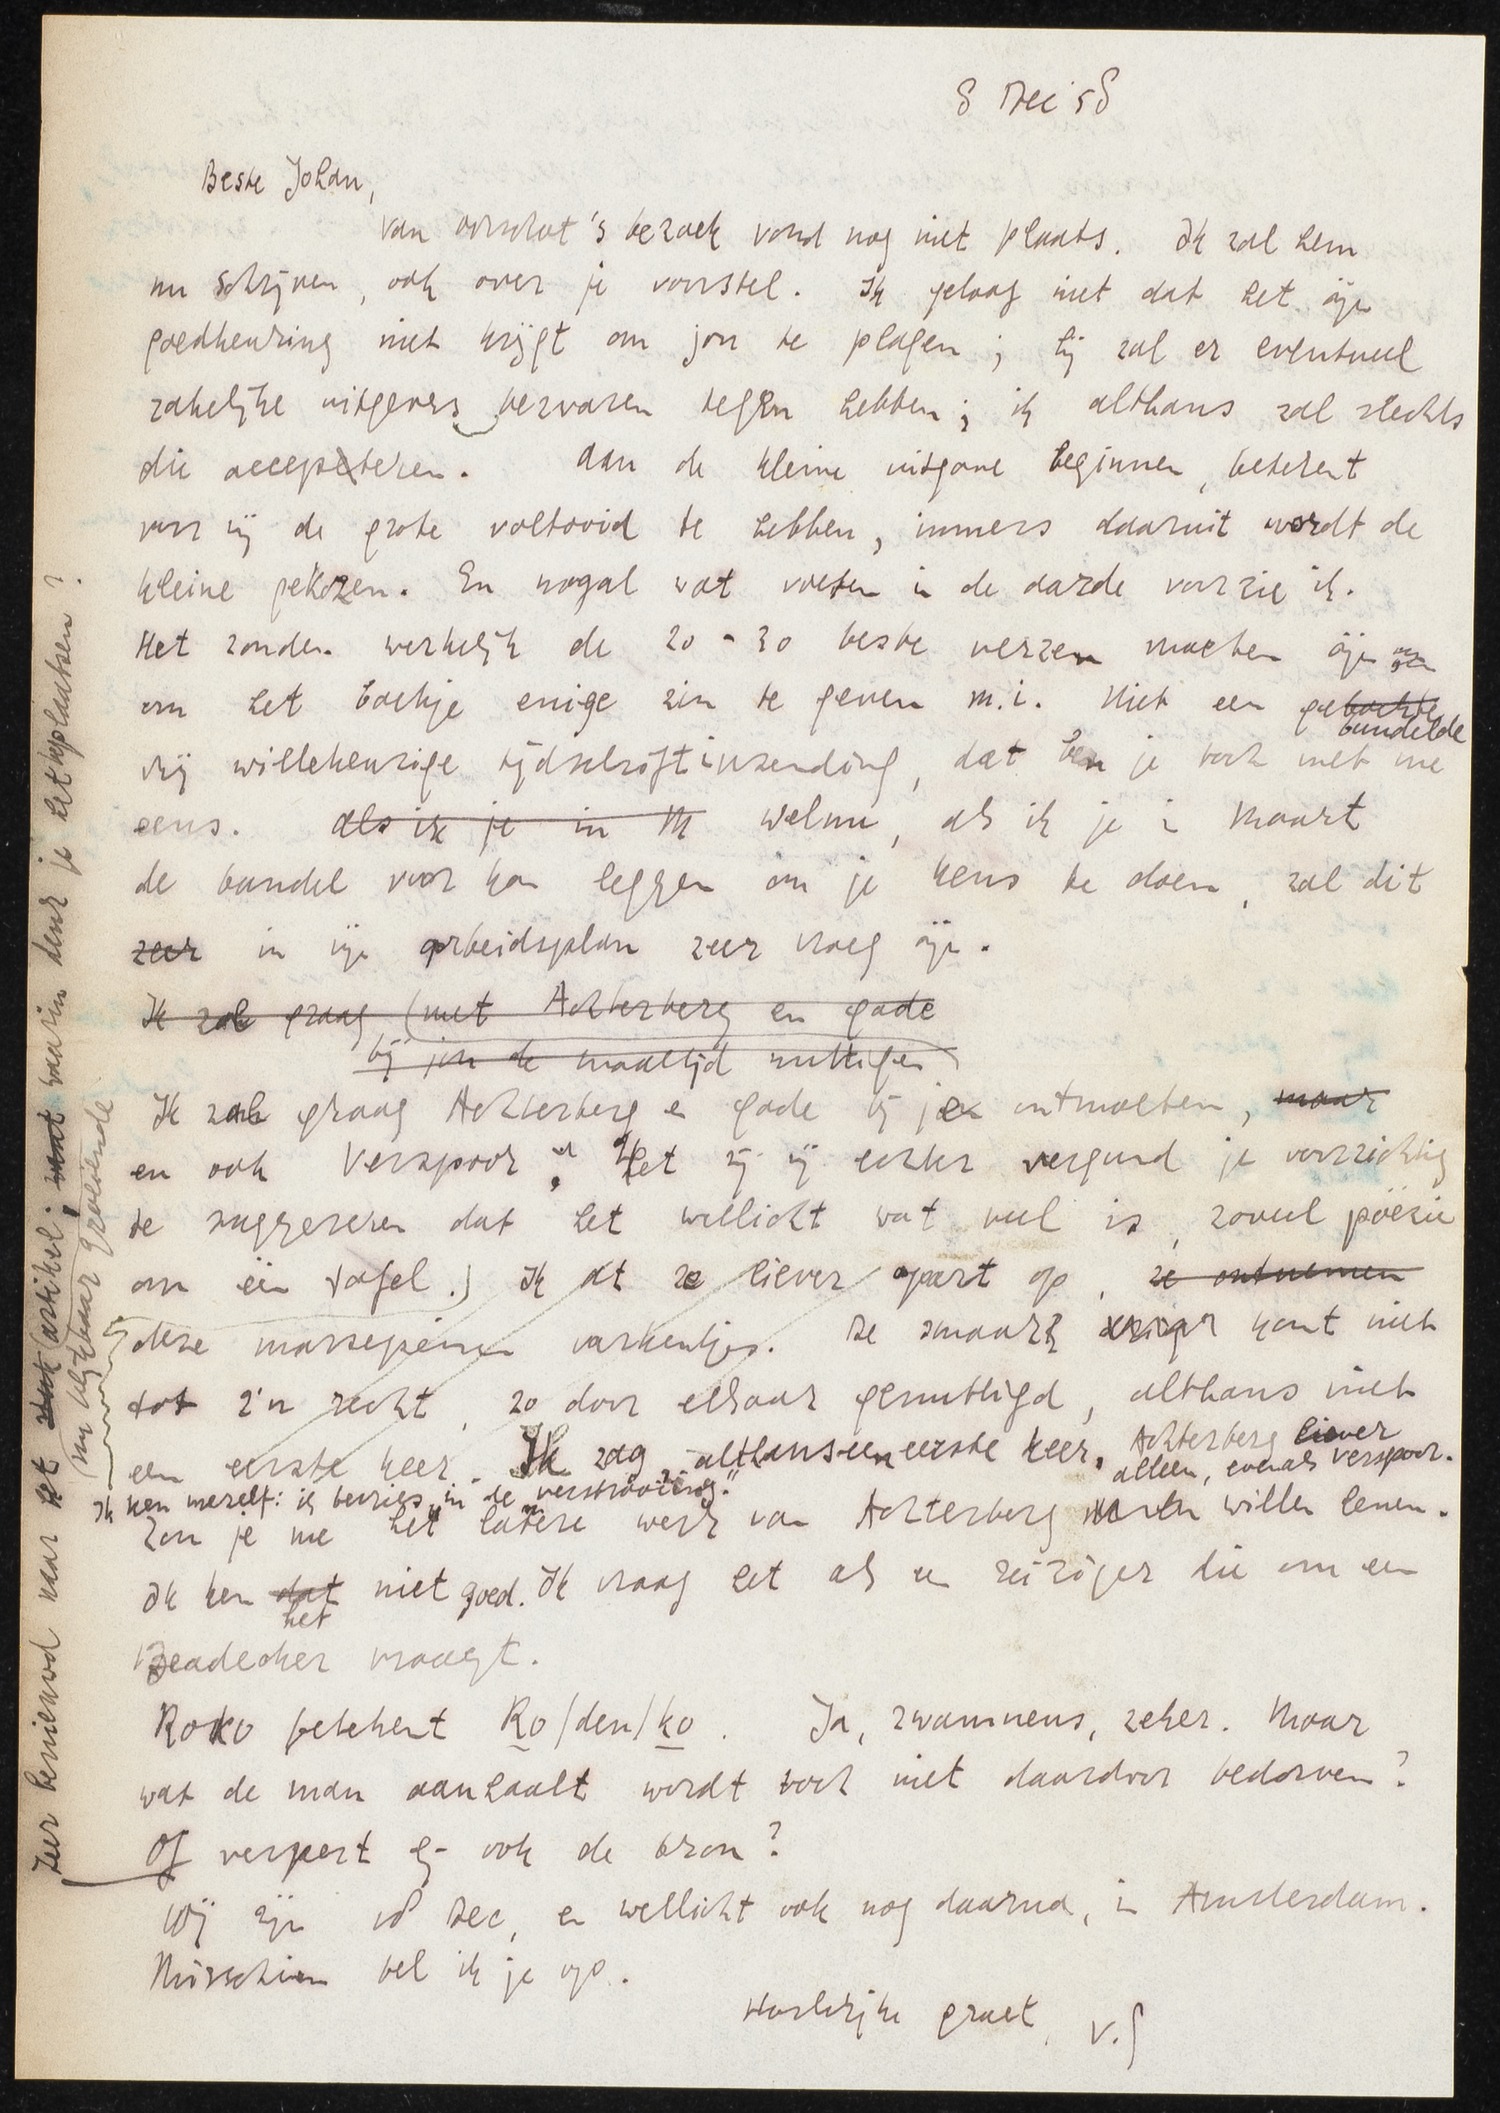 8 Dec '58
Beste Johan,
van Oorschot's bezoek vond nog niet plaats. Ik zal hem
nu schrijven, ook over je voorstel. Ik geloof niet dat het zijn
goedkeuring niet krijgt om jou te plagen; hij zal er eventueel
zakelijke uitgevers bezwaren tegen hebben; ik althans zal slechts
die accepteren. Aan de kleine uitgave beginnen, betekent
voor mij de grote voltooid te hebben, immers daaruit wordt de
kleine gekozen. En nogal wat voeten in de aarde voorzie ik.
Het zouden werkelijk de 20 - 30 beste verzen moeten zijn
om het boekje enige zin te geven m.i. Niet een gebundelde
vrij willekeurige tijdschriftinzending, dat ben je toch met me
eens. als ik je in M Welnu, als ik je in Maart
de bundel voor kan leggen om je keus te doen, zal dit
zeer in mijn arbeidsplan zeer vroeg zijn.
Ik zal graag (met Achterberg en gade
bij jou de maaltijd nuttigen)
Ik zal graag Achterberg en gade bij je ontmoeten, maar
en ook Verspoor; Het zij mij echter vergund je voorzichtig
te suggereren dat het wellicht wat veel is, zoveel poëzie
om één tafel.) Ik at ze liever apart op, ze ontnemen
deze marsepeinen varkentjes. De smaak komt niet
tot z'n recht, zo door elkaar genuttigd, althans niet
een eerste keer. Ik zag, althans een eerste keer, Achterberg liever
alleen, evenals Verspoor.
Ik ken mezelf: ik bevries "in de verstrooiing."
Zou je me het latere werk van Achterberg willen lenen.
Ik ken dat het niet goed. Ik vraag het als een reiziger die om een
Beadecker vraagt.
Roko betekent Ro/den/ko. Ja, zwamneus, zeker. Maar
wat de man aanhaalt wordt toch niet daardoor bedorven?
Of verpest hij ook de bron?
Wij zijn 18 Dec, en wellicht ook nog daarna, in Amsterdam.
Misschien bel ik je op.
Hartelijke groet, v.G
Zeer benieuwd naar het artikel; waarin denk je het te plaatsen?
(nu blijkbaar groeiende